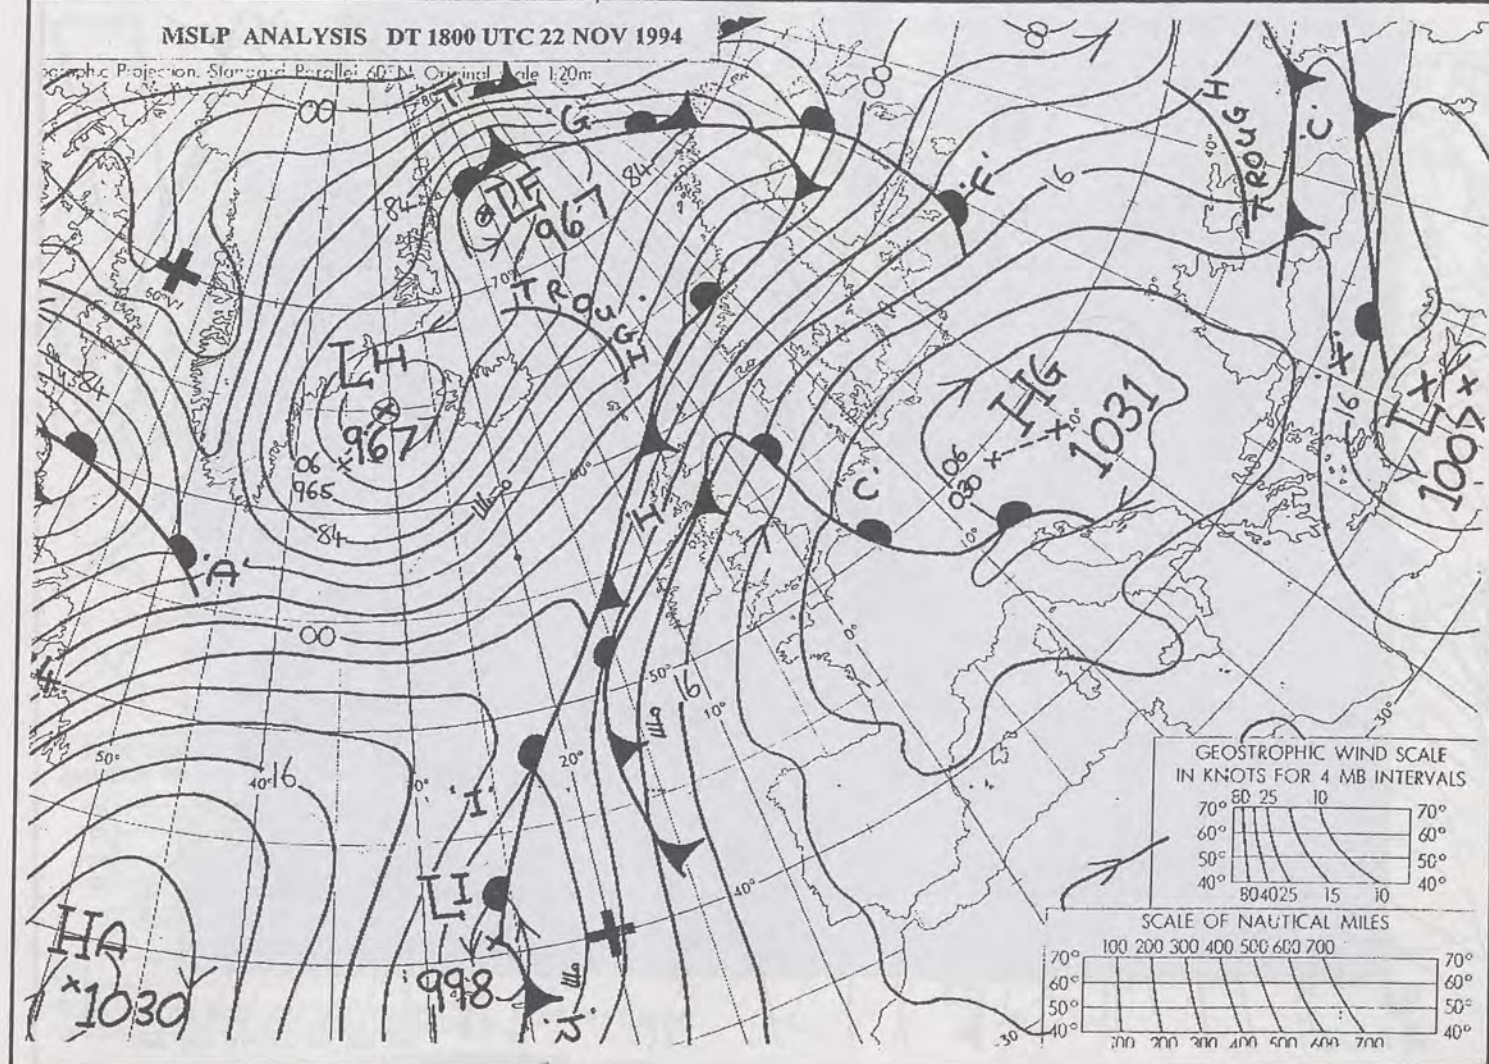 MSLP ANALYSIS DT 1800 UTC 22 NOV 1994
Projection, Standard Parallel 60°N, Original Scale 1:20m
80°
T
G
00
8
8
TROUGH
C
'F'
16
84
84
LF
967
70°
TROUGH
60°W
LH
967
06
965
84
84
HG
1031
0°
06
030
C'
10°
X
16
LX
1007
60°
H
'A'
00
0°
50°
16
10°
50°
40°
16
20°
'I'
40°
30°
LI
998
'J'
HA
1030
GEOSTROPHIC WIND SCALE
IN KNOTS FOR 4 MB INTERVALS
80 25 10
70° 70°
60° 60°
50° 50°
40° 40°
80 40 25 15 10
SCALE OF NAUTICAL MILES
100 200 300 400 500 600 700
70° 70°
60° 60°
50° 50°
40° 40°
100 200 300 400 500 600 700
30